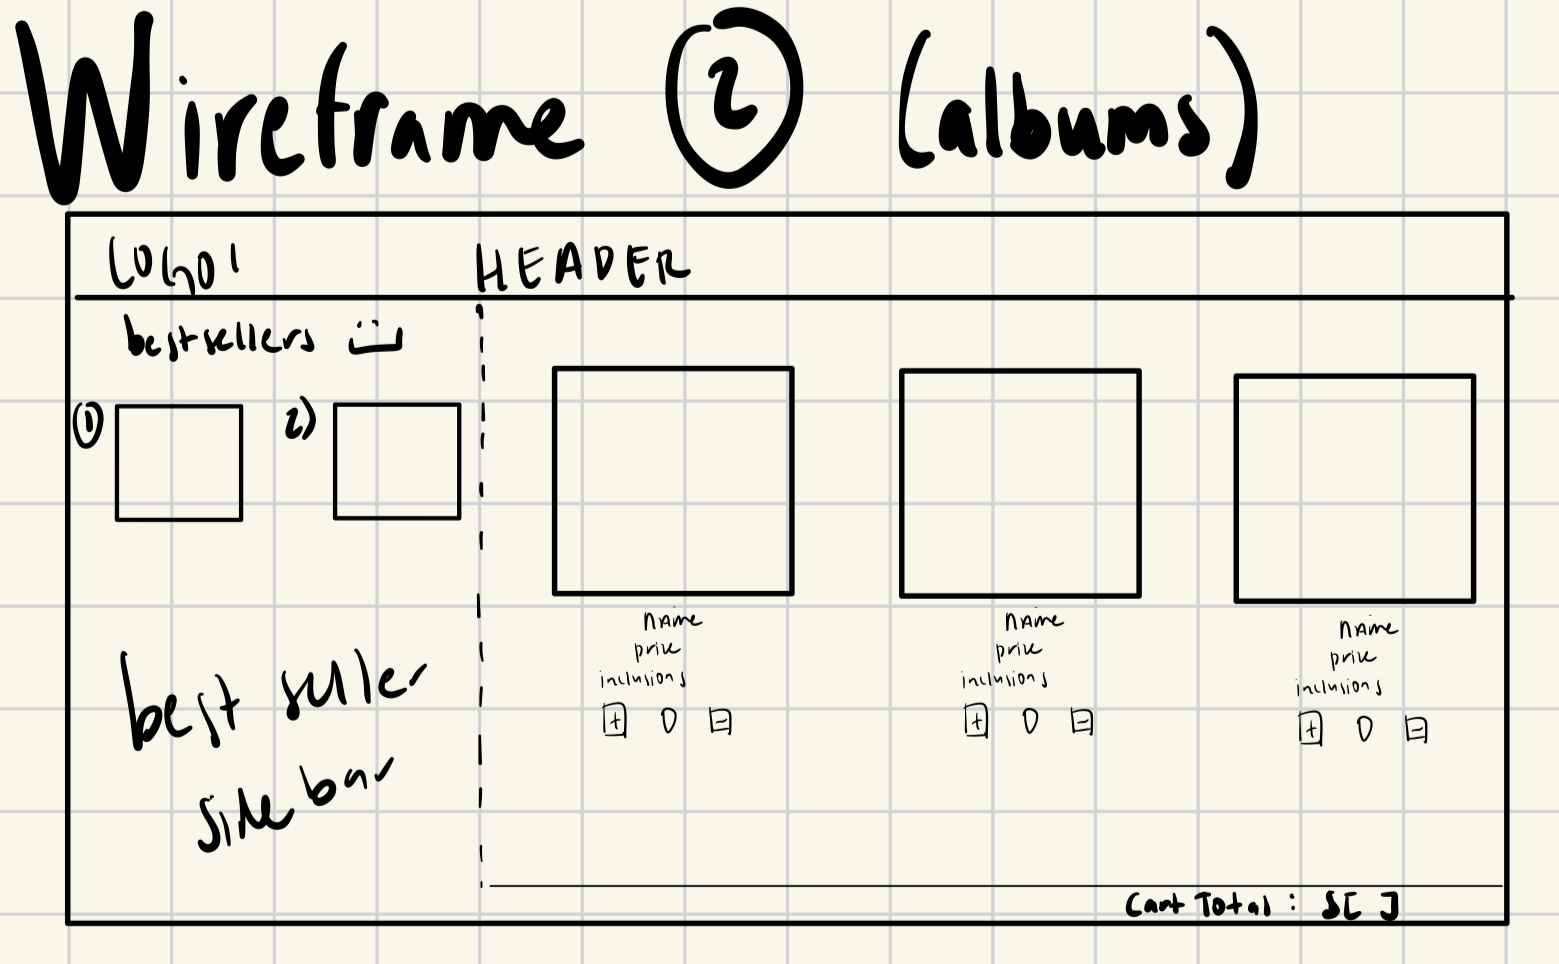 Wireframe 2 (albums)
LOGO!
HEADER
bestsellers
1
2)
best seller
side bar
name
price
inclusions
+ 0 -
name
price
inclusions
+ 0 -
name
price
inclusions
+ 0 -
Cart Total: $[ ]